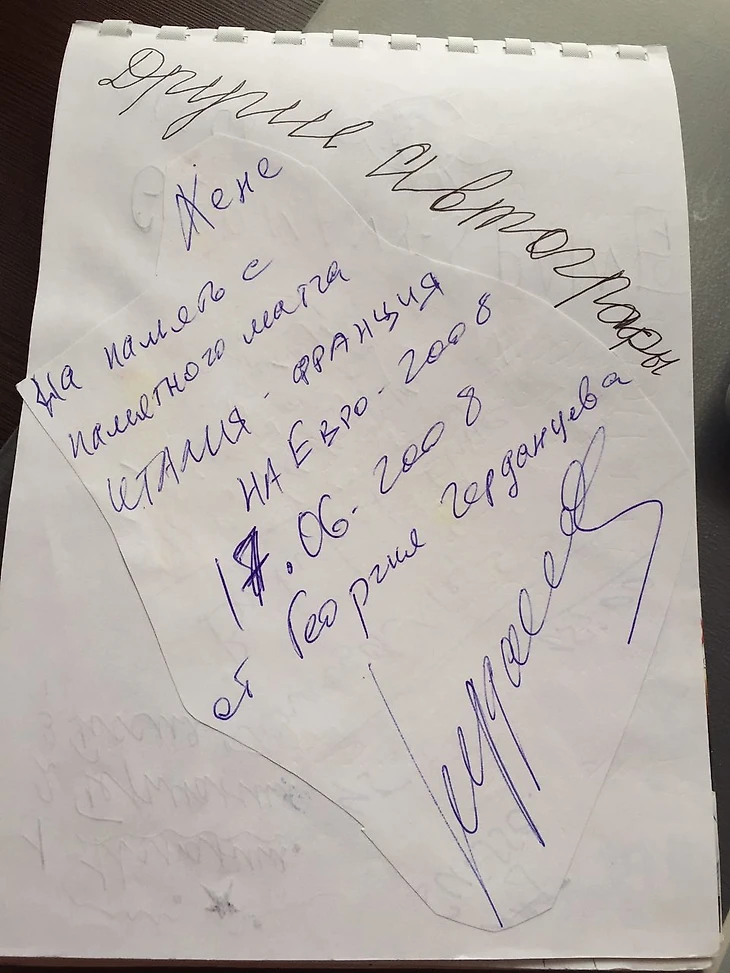 Другие автографы
Жене
На память с
памятного матча
ИТАЛИЯ - ФРАНЦИЯ
НА ЕВРО - 2008
17.06.2008
от Георгия Черданцева